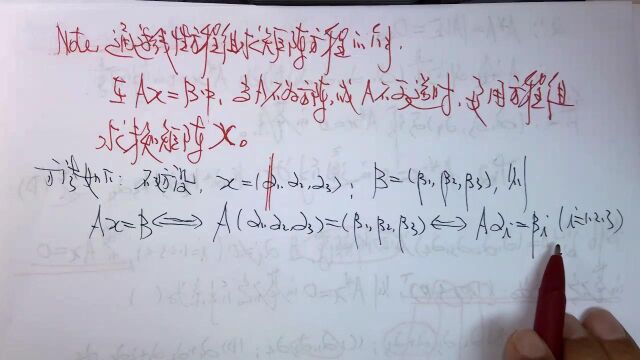 Note 通过线性方程组求矩阵方程问题.
在 Ax=B中, 当A不为方阵, 或A不可逆时, 可用方程组
求矩阵 X。
方法如下: 不妨设, x=(α₁,α₂,α₃); B=(β₁,β₂,β₃), 则
Ax=B⟺ A(α₁,α₂,α₃)=(β₁,β₂,β₃)⟺ Aαᵢ=βᵢ (i=1,2,3)